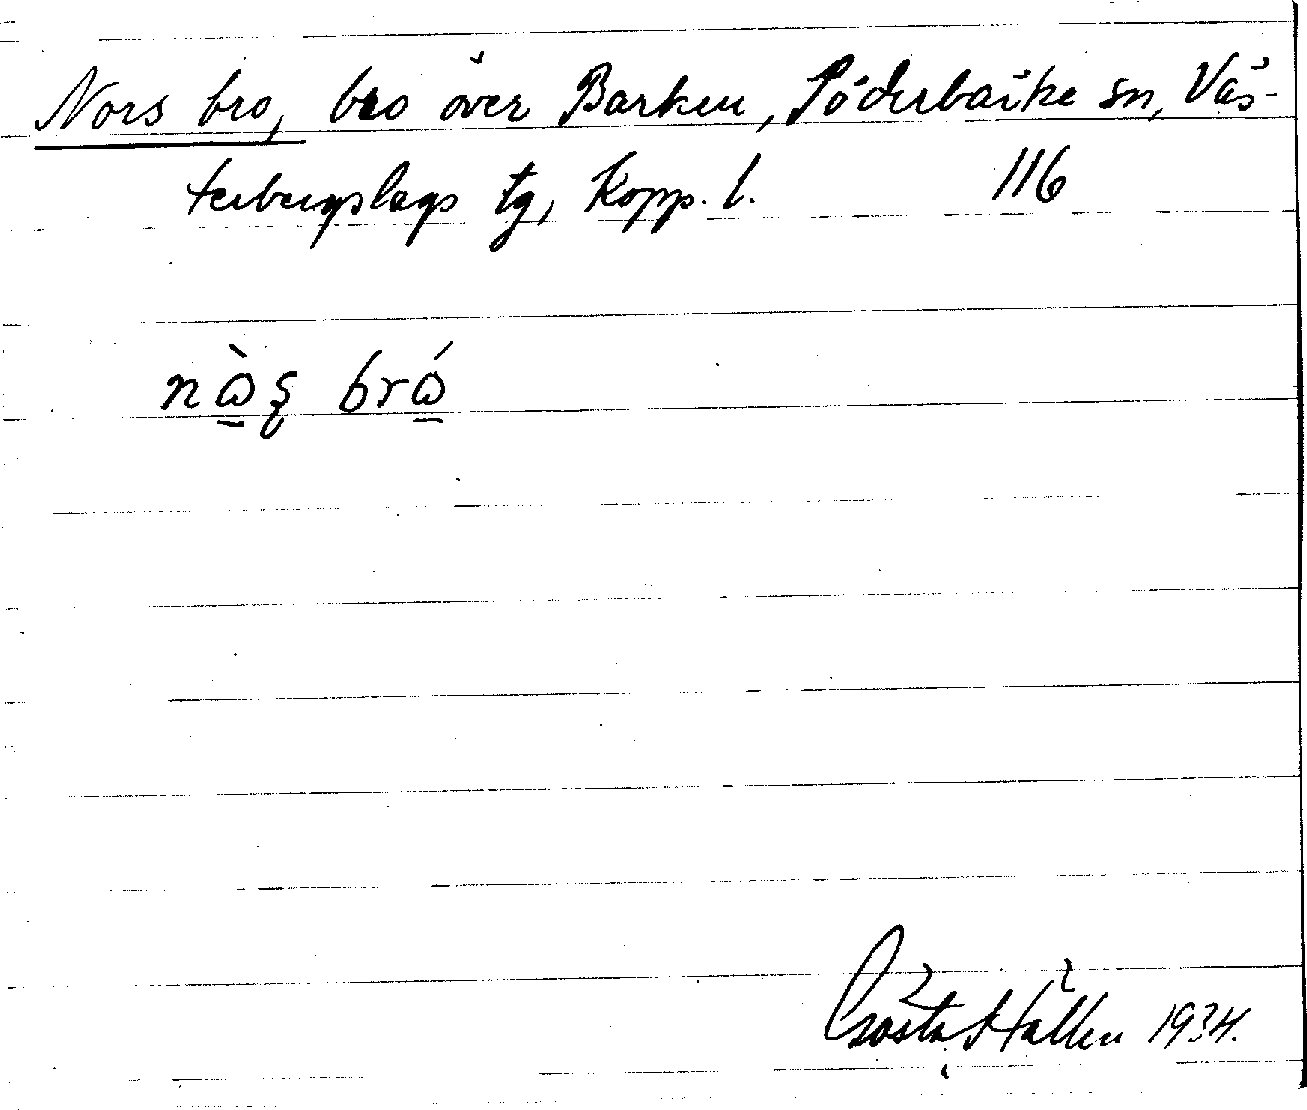 Nors bro, bro över Barken, Söderbärke sn, Väs-
terbergslags tg, Kopp. l. 116
nꞷ̠̀ʂ brꞷ̠́
Gösta Hällen 1934.